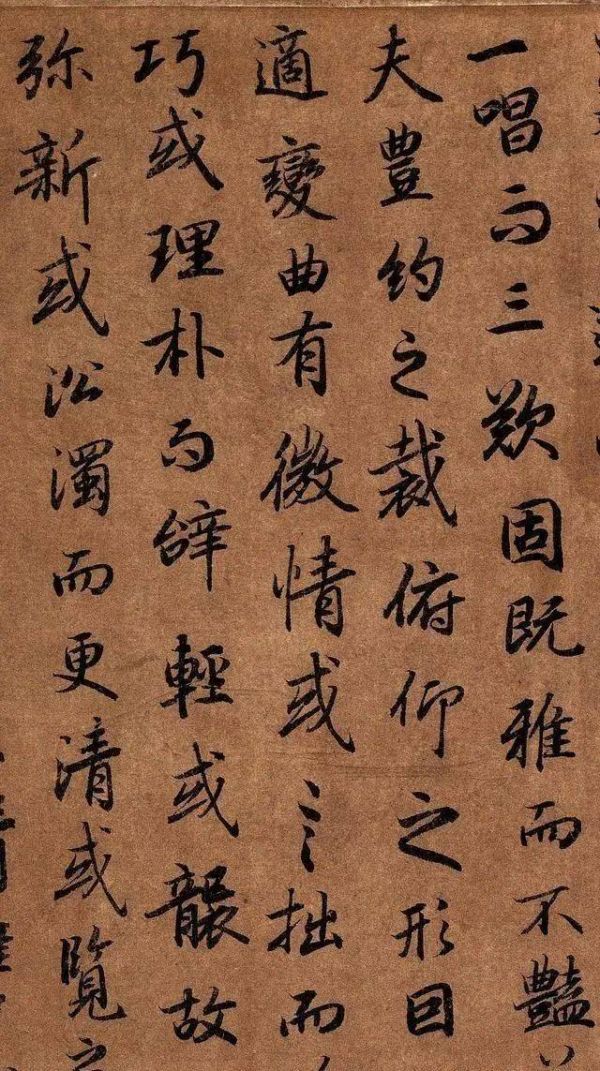 一唱而三歎固既雅而不艷
夫豊約之裁俯仰之形因
適變曲有微情或言拙而
巧或理朴而辞輕或襲故
弥新或沿濁而更清或覽之